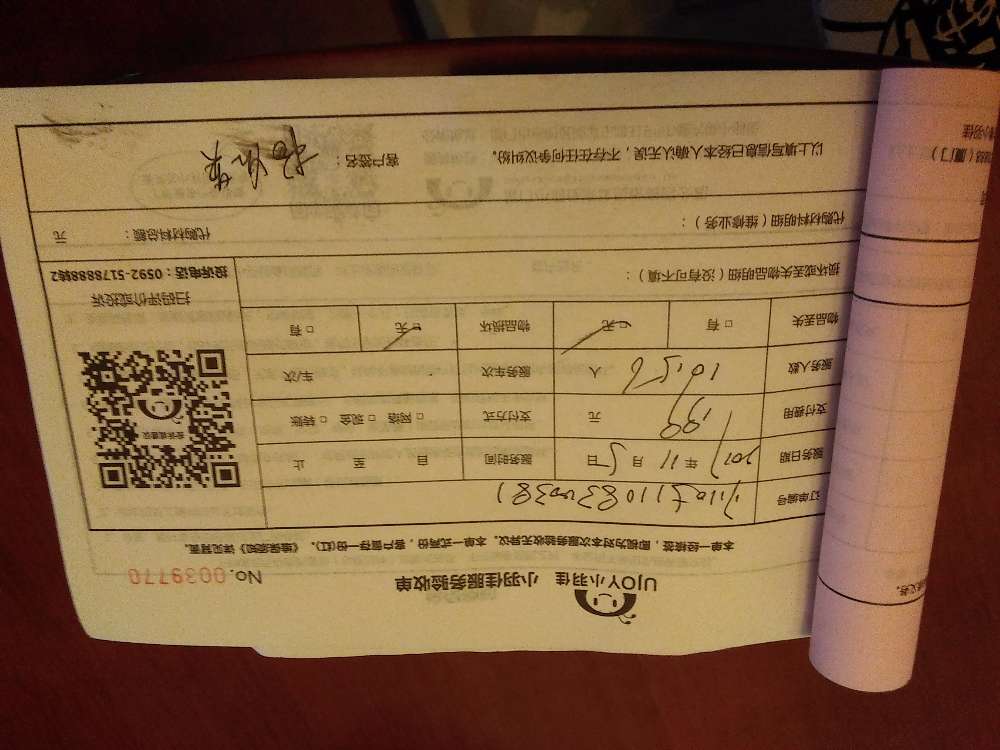 UJOY小羽佳 小羽佳服务验收单
No.0039770
本单一经检签，即视为对本次服务验收无异议。本单一式两份，客户留存一份(红)。《维保须知》详见背面。
订单编号
服务日期 2017年11月5日 服务时间 自 至 止
支付费用 199元 支付方式 □网络 □现金 □转账
服务人数 人 服务车次 车/次
物品丢失 □有 □无 物品损坏 □无 □有
损坏或丢失物品明细（没有可不填）：
扫码评价或投诉
投诉电话：0592-5178888转2
代购材料明细（维修业务）：
代购材料总额： 元
以上填写信息已经本人确认无误，不存在任何争议纠纷。 客户签名：